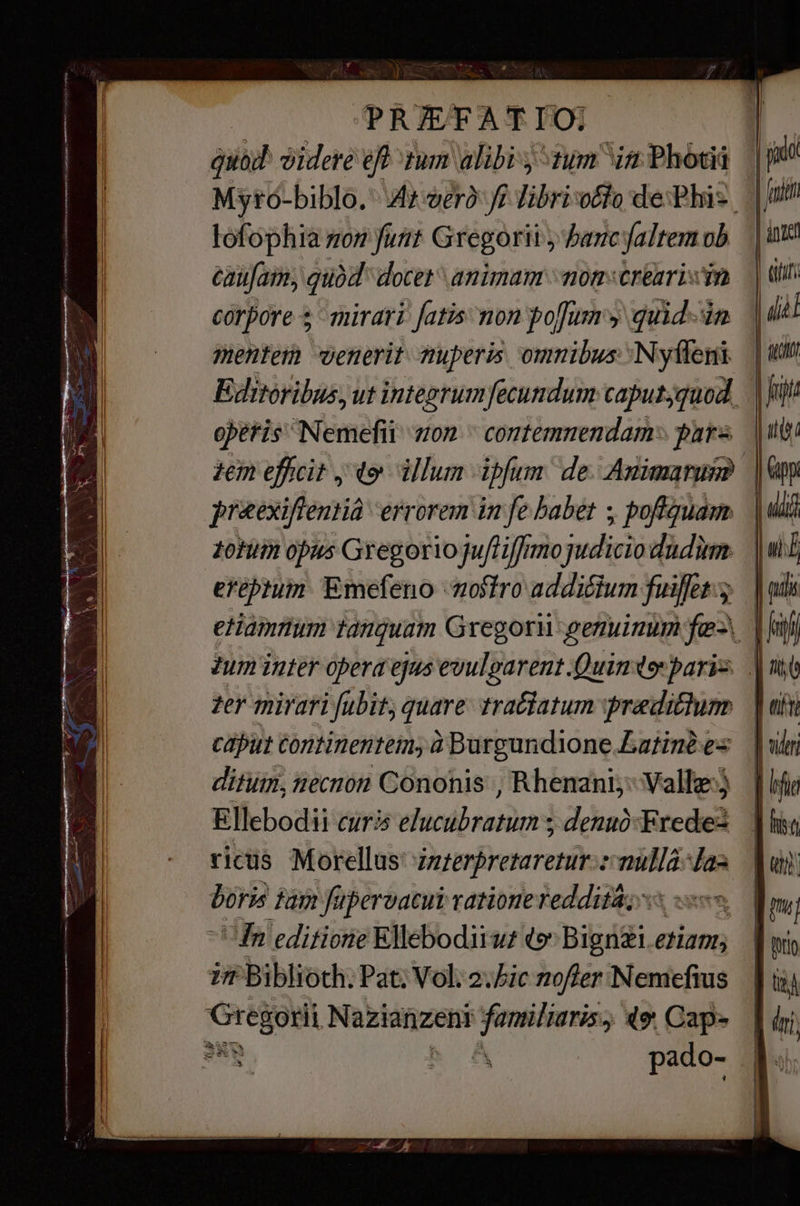 PRÆFATIO.
quòd videre eſt tum alibi, tum in Photii
Myro-biblo. At verò ſi libri octo de Phi-
loſophia non ſunt Gregorii, hanc ſaltem ob
cauſam, quòd docet animam non creari in
corpore; mirari ſatis non poſſum, quid in
mentem venerit nuperis omnibus Nyſſeni
Editoribus, ut integrum ſecundum caput, quod
operis Nemeſii non contemnendam par-
tem efficit, & illum ipſum de Animarum
præexiſtentiâ errorem in ſe habet; poſtquàm
totum opus Gregorio juſtiſſimo judicio dudùm
ereptum Emeſeno noſtro addictum fuiſſet,
etiamnum tanquam Gregorii genuinum fœ-
tum inter opera ejus evulgarent. Quin & pari-
ter mirari ſubit, quare tractatum prædictum
caput continentem, à Burgundione Latinè e-
ditum, necnon Cononis, Rhenani, Vallæ,
Ellebodii curis elucubratum; denuò Frede-
ricus Morellus interpretaretur: nullâ la-
boris tam ſupervacui ratione redditâ.
In editione Ellebodii ut & Bignæi etiam,
in Biblioth. Pat. Vol. 2. hic noſter Nemeſius
Gregorii Nazianzeni familiaris, & Cap-
pado-